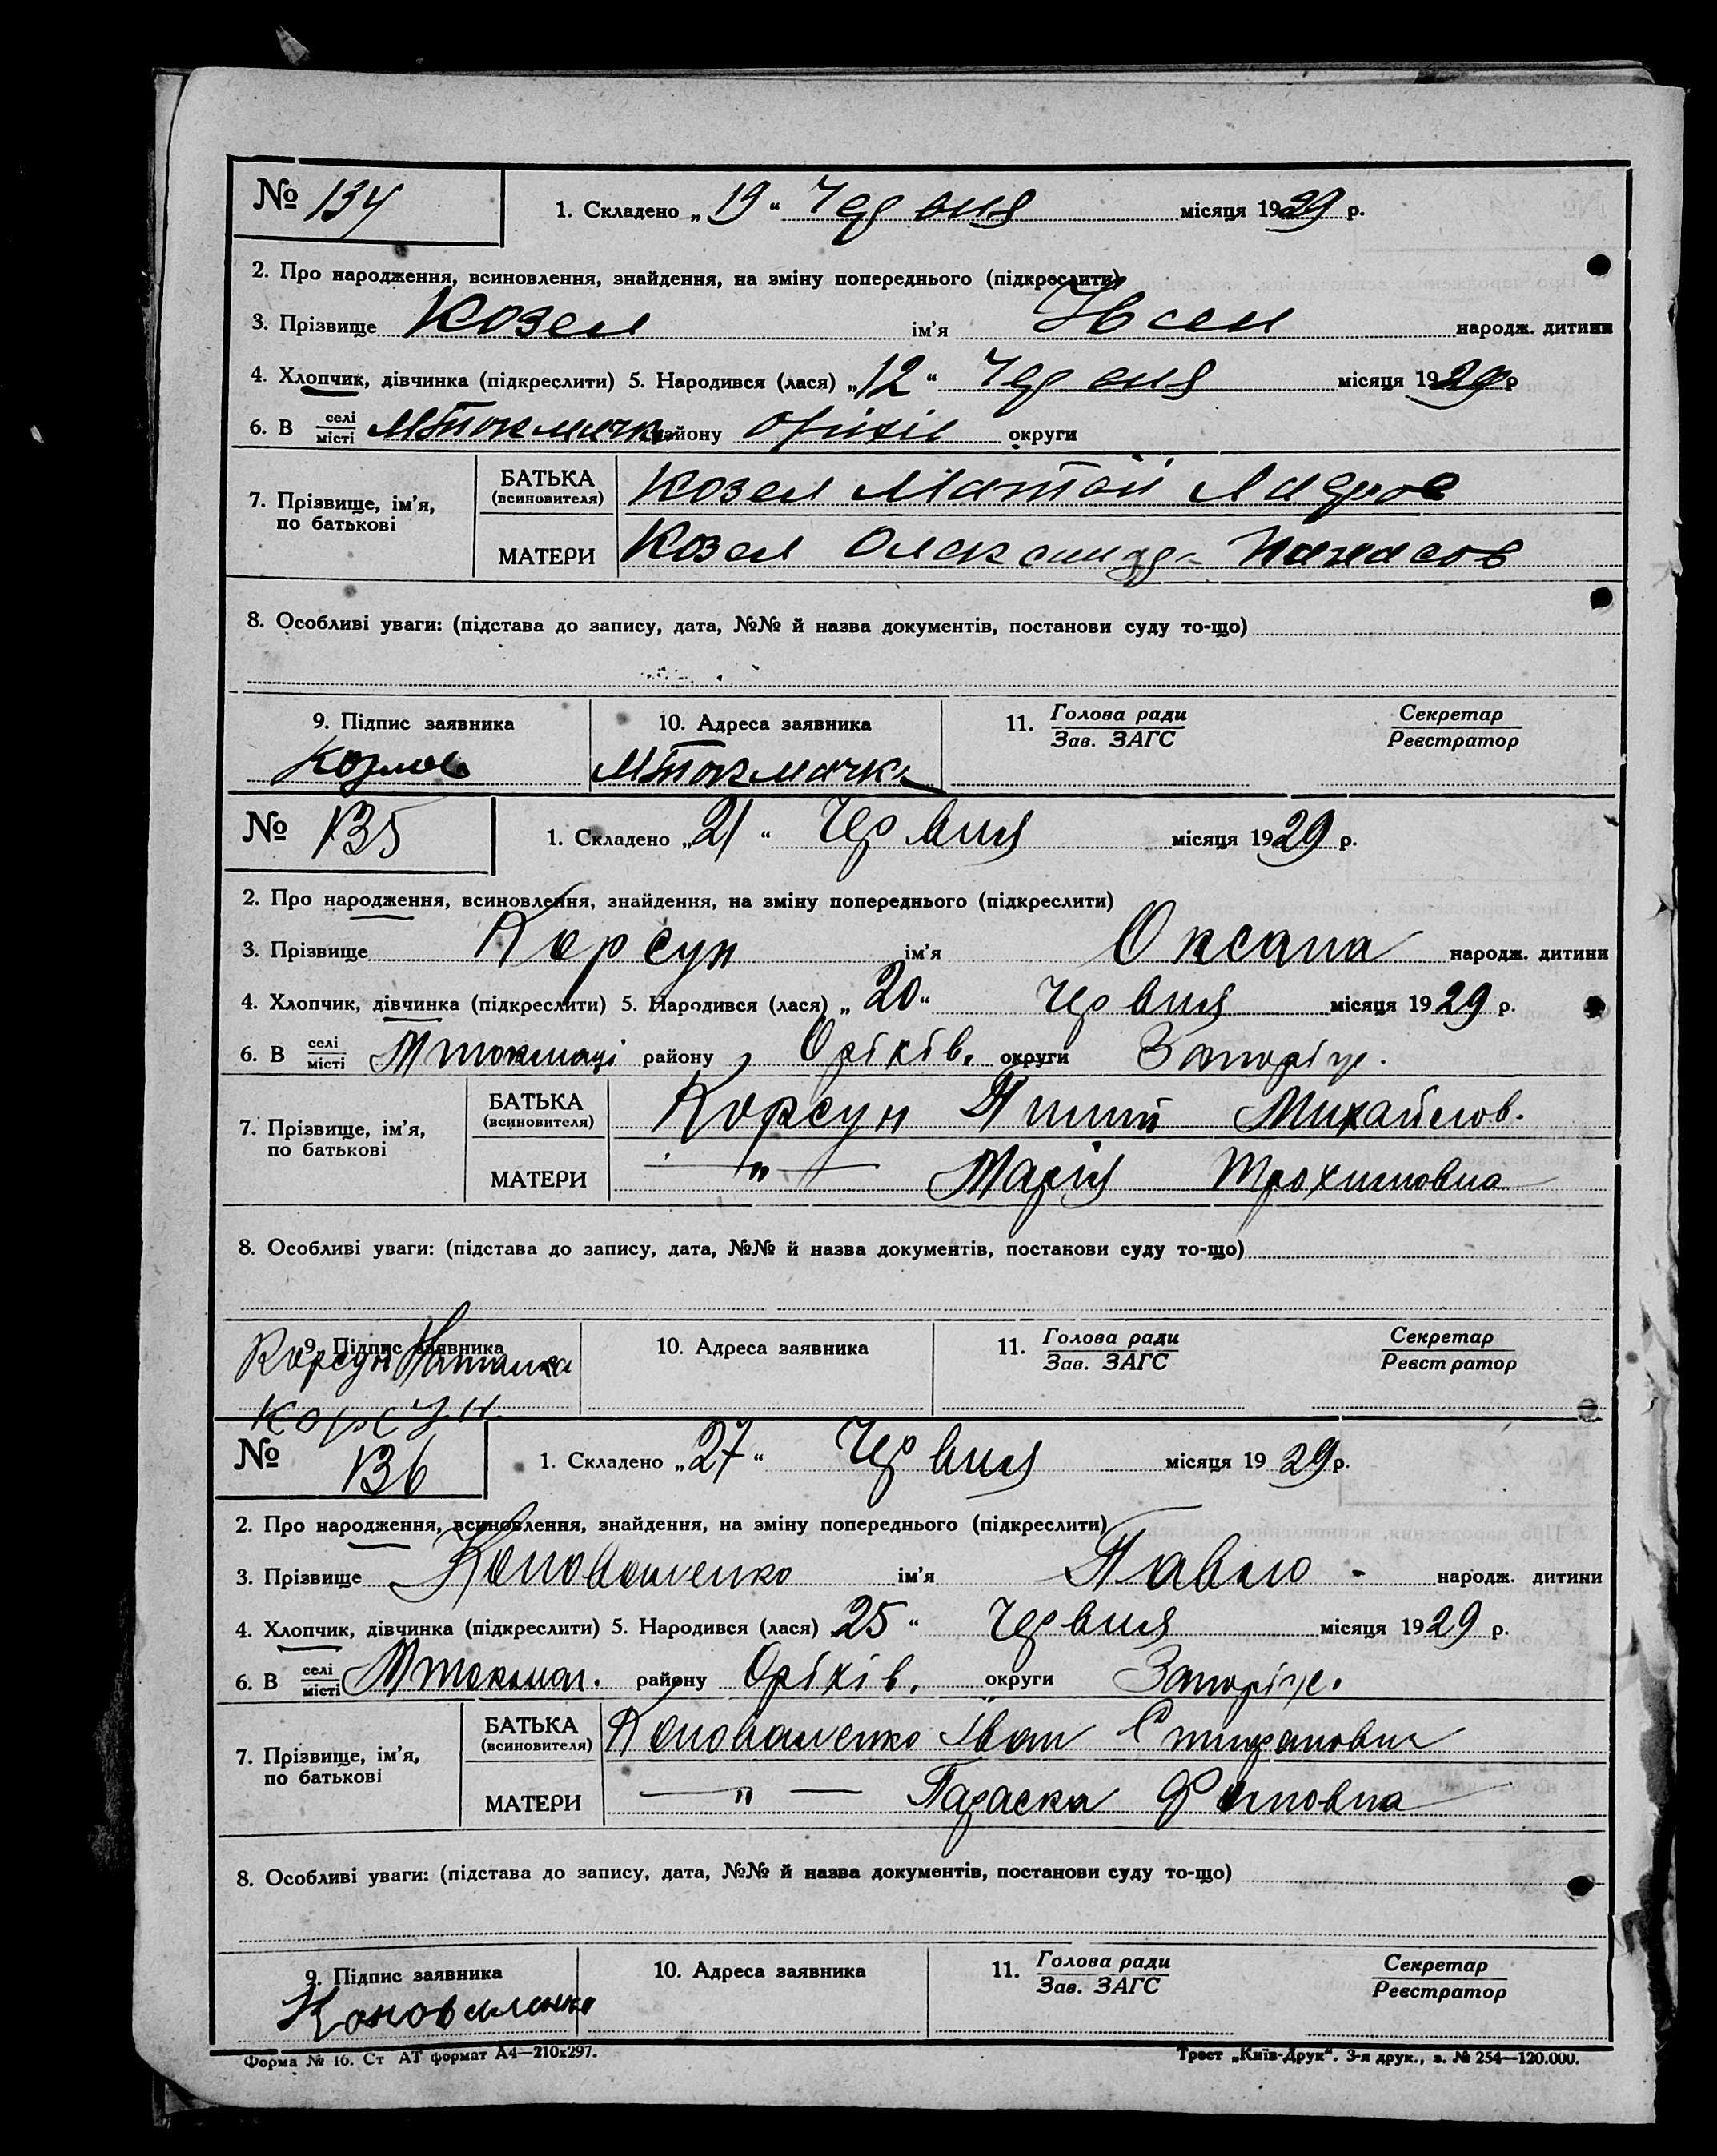 № 134 1. Складено „19“ Червня місяця 1929 р.
2. Про народження, всиновлення, знайдення, на зміну попереднього (підкреслити)
3. Прізвище Козел ім'я народж. дитини
4. Хлопчик, дівчинка (підкреслити) 5. Народився (лася) „12“ Червня місяця 1929 р
6. В селі місті МТокмачк району Оріхів округи
7. Прізвище, ім'я, по батькові
БАТЬКА (всиновителя) Козел
МАТЕРИ Козел Олександра Панасов
8. Особливі уваги: (підстава до запису, дата, №№ й назва документів, постанови суду то-що)
9. Підпис заявника 10. Адреса заявника 11. Голова ради Зав. ЗАГС Секретар Реєстратор
Козлов МТокмачка
№ 135 1. Складено „21“ Червня місяця 1929 р.
2. Про народження, всиновлення, знайдення, на зміну попереднього (підкреслити)
3. Прізвище Корсун ім'я Оксана народж. дитини
4. Хлопчик, дівчинка (підкреслити) 5. Народився (лася) „20“ Червня місяця 1929 р.
6. В селі місті Мтокмаці району Оріхів. округи Запоріж.
7. Прізвище, ім'я, по батькові
БАТЬКА (всиновителя) Корсун Михайлов.
МАТЕРИ —„— Марія Трохимовна
8. Особливі уваги: (підстава до запису, дата, №№ й назва документів, постанови суду то-що)
9. Підпис заявника 10. Адреса заявника 11. Голова ради Зав. ЗАГС Секретар Реєстратор
Корсун Наталка
Корсун
№ 136 1. Складено „27“ Червня місяця 1929 р.
2. Про народження, всиновлення, знайдення, на зміну попереднього (підкреслити)
3. Прізвище Коноваленко ім'я Павло народж. дитини
4. Хлопчик, дівчинка (підкреслити) 5. Народився (лася) 25“ Червня місяця 1929 р.
6. В селі місті Мтокмач. району Оріхів. округи Запоріж.
7. Прізвище, ім'я, по батькові
БАТЬКА (всиновителя) Коноваленко Іван
МАТЕРИ —„— Параска
8. Особливі уваги: (підстава до запису, дата, №№ й назва документів, постанови суду то-що)
9. Підпис заявника 10. Адреса заявника 11. Голова ради Зав. ЗАГС Секретар Реєстратор
Коноваленко
Форма № 16. Ст АТ формат А4—210х297. Трест „Київ-Друк“. 3-я друк., з. № 254—120.000.